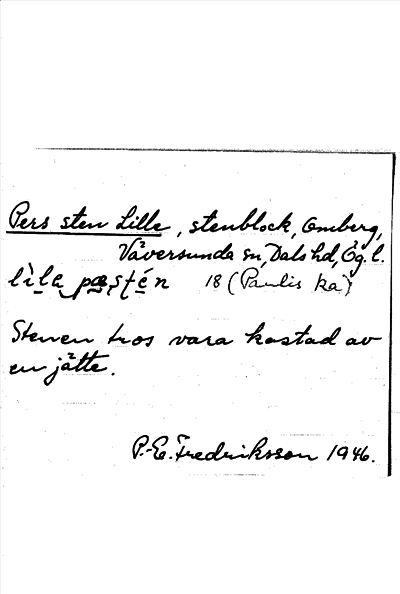 Pers sten Lille, stenblock, Omberg,
Väversunda sn, Dals hd, Ög. l.
lìla pæʂtén 18 (Paulis ka)
Stenen tros vara kastad av
en jätte.
P.-E. Fredriksson 1946.